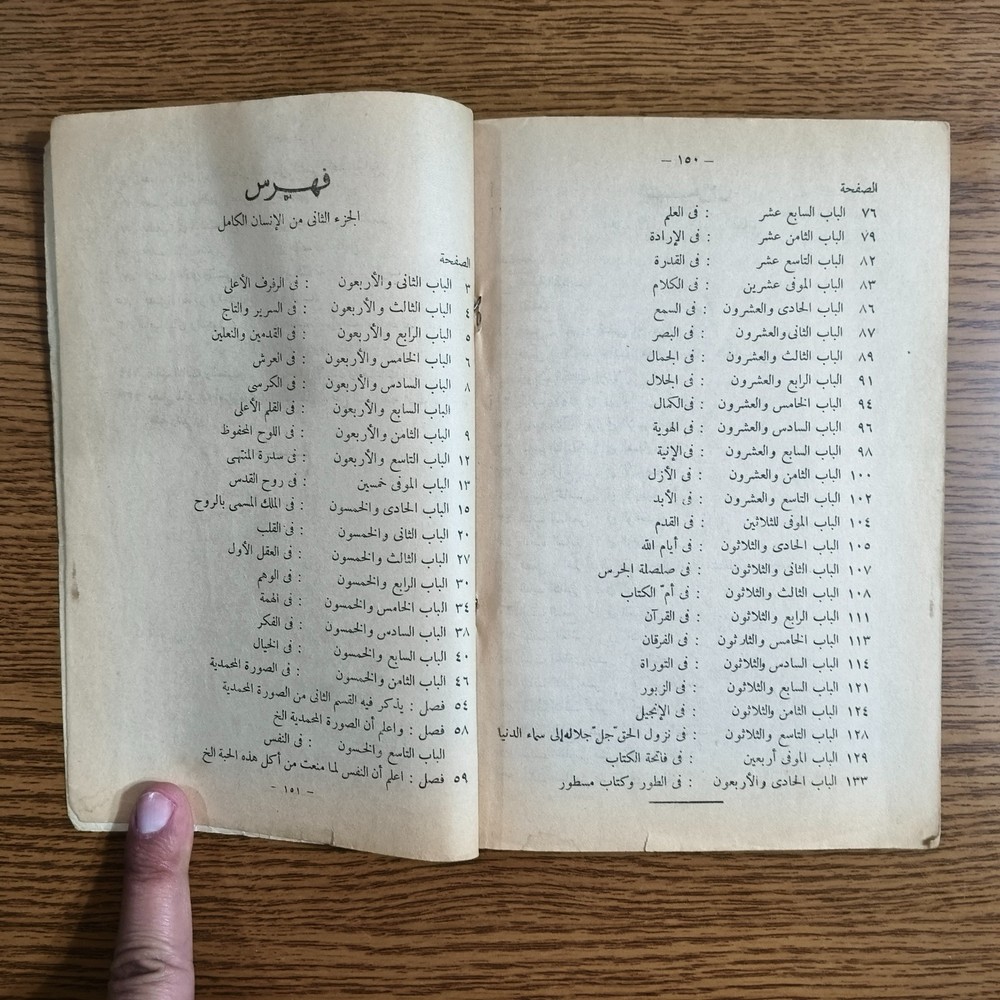 — ١٥٠ —
الصفحة
٧٦ الباب السابع عشر : فى العلم
٧٩ الباب الثامن عشر : فى الإرادة
٨٢ الباب التاسع عشر : فى القدرة
٨٣ الباب الموفى عشرين : فى الكلام
٨٦ الباب الحادى والعشرون : فى السمع
٨٧ الباب الثانى والعشرون : فى البصر
٨٩ الباب الثالث والعشرون : فى الجمال
٩١ الباب الرابع والعشرون : فى الجلال
٩٤ الباب الخامس والعشرون : فى الكمال
٩٦ الباب السادس والعشرون : فى الهوية
٩٨ الباب السابع والعشرون : فى الإنية
١٠٠ الباب الثامن والعشرون : فى الأزل
١٠٢ الباب التاسع والعشرون : فى الأبد
١٠٤ الباب الموفى للثلاثين : فى القدم
١٠٥ الباب الحادى والثلاثون : فى أيام الله
١٠٧ الباب الثانى والثلاثون : فى صلصلة الجرس
١٠٨ الباب الثالث والثلاثون : فى أمّ الكتاب
١١١ الباب الرابع والثلاثون : فى القرآن
١١٣ الباب الخامس والثلاثون : فى الفرقان
١١٤ الباب السادس والثلاثون : فى التوراة
١٢١ الباب السابع والثلاثون : فى الزبور
١٢٤ الباب الثامن والثلاثون : فى الإنجيل
١٢٨ الباب التاسع والثلاثون : فى نزول الحق جلّ جلاله إلى سماء الدنيا
١٢٩ الباب الموفى أربعين : فى فاتحة الكتاب
١٣٣ الباب الحادى والأربعون : فى الطور وكتاب مسطور
فهرس
الجزء الثانى من الإنسان الكامل
الصفحة
٣ الباب الثانى والأربعون : فى الرفرف الأعلى
٤ الباب الثالث والأربعون : فى السرير والتاج
٥ الباب الرابع والأربعون : فى القدمين والنعلين
٦ الباب الخامس والأربعون : فى العرش
٨ الباب السادس والأربعون : فى الكرسى
الباب السابع والأربعون : فى القلم الأعلى
٩ الباب الثامن والأربعون : فى اللوح المحفوظ
١٢ الباب التاسع والأربعون : فى سدرة المنتهى
١٣ الباب الموفى خمسين : فى روح القدس
١٥ الباب الحادى والخمسون : فى الملك المسمى بالروح
٢٠ الباب الثانى والخمسون : فى القلب
٢٧ الباب الثالث والخمسون : فى العقل الأول
٣٠ الباب الرابع والخمسون : فى الوهم
٣٤ الباب الخامس والخمسون : فى الهمة
٣٨ الباب السادس والخمسون : فى الفكر
٤٠ الباب السابع والخمسون : فى الخيال
٤٦ الباب الثامن والخمسون : فى الصورة المحمدية
٥٤ فصل : يذكر فيه القسم الثانى من الصورة المحمدية
٥٨ فصل : واعلم أن الصورة المحمدية الخ
الباب التاسع والخمسون : فى النفس
٥٩ فصل : اعلم أن النفس لما منعت من أكل هذه الحبة الخ
— ١٥١ —